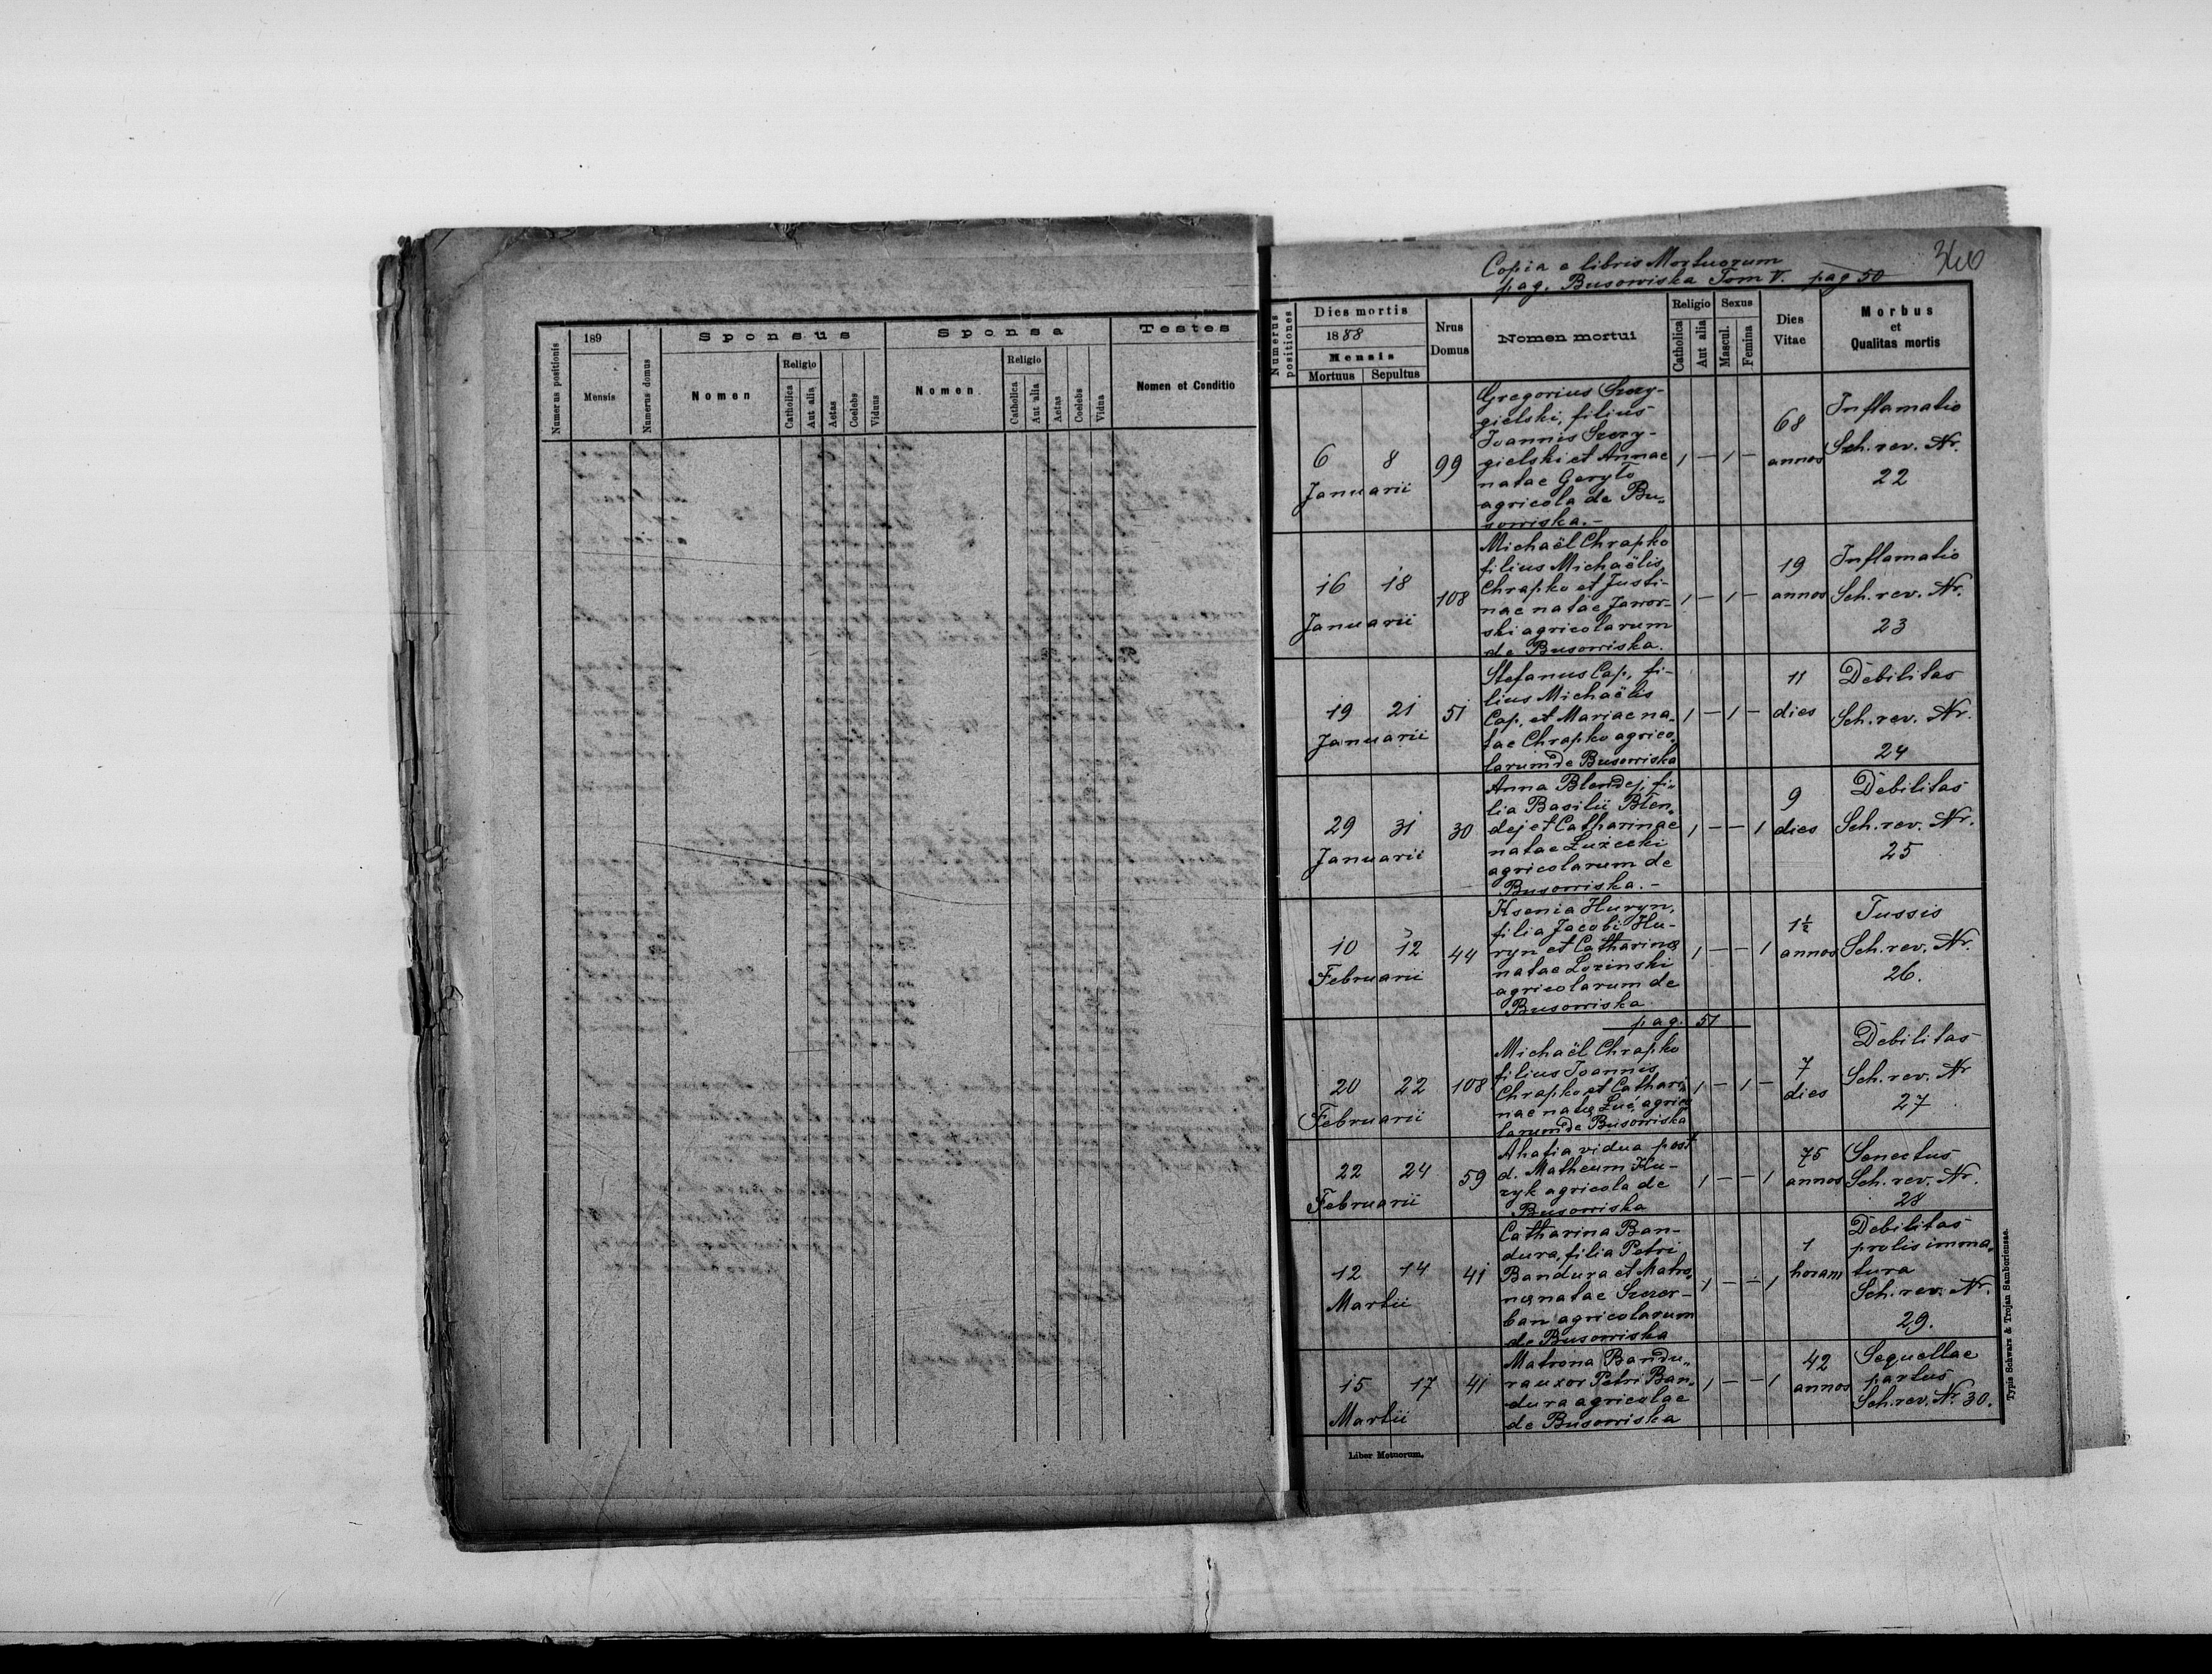 189
Sponsus
Sponsa
Testes
Numerus positionis
Mensis
Numerus domus
Nomen
Religio
Catholica
Aut alia
Aetas
Coelebs
Viduus
Nomen
Religio
Catholica
Aut alia
Aetas
Coelebs
Vidua
Nomen et Conditio
Copia e libris Mortuorum
pag. Busowiska Tom V. pag 50
Numerus positiones
Dies mortis
1888
Mensis
Mortuus Sepultus
Nrus
Domus
Nomen mortui
Religio
Catholica
Aut alia
Sexus
Mascul.
Femina
Dies
Vitae
Morbus
et
Qualitas mortis
6 8
Januarii
99
Gregorius Szczy-
gielski, filius
Joannis Szczy-
gielski et Annae
natae Geryło
agricola de Bu-
sowiska.-
1 - 1 -
68
annos
Inflamatio
Sch. rev. Nr.
22
16 18
Januarii
108
Michaël Chrapko
filius Michaëlis
Chrapko et Justi-
nae natae Jawor-
ski agricolarum
de Busowiska.
1 - 1 -
19
annos
Inflamatio
Sch. rev. Nr.
23
19 21
Januarii
51
Stefanus Cap, fi-
lius Michaëlis
Cap, et Mariae na-
tae Chrapko agrico-
larum de Busowiska
1 - 1 -
11
dies
Debilitas
Sch. rev. Nr.
24
29 31
Januarii
30
Anna Blendej, fi-
lia Basilii Blen-
dej et Catharinae
natae Łużecki
agricolarum de
Busowiska.-
1 - - 1
9
dies
Debilitas
Sch. rev. Nr.
25
10 12
Februarii
44
Ksenia Huryn,
filia Jacobi Hu-
ryn et Catharinae
natae Lozinski
agricolarum de
Busowiska
1 - - 1
1½
annos
Tussis
Sch. rev. Nr.
26.
pag. 51
20 22
Februarii
108
Michaël Chrapko
filius Joannis
Chrapko et Cathari-
nae natae Łuć agrico-
larum de Busowiska
1 - 1 -
7
dies
Debilitas
Sch. rev. Nr
27
22 24
Februarii
59
Ahafia vidua post
d. Matheum Hu-
zyk agricola de
Busowiska
1 - - 1
75
annos
Senectus
Sch. rev. Nr.
28
12 14
Martii
41
Catharina Ban-
dura, filia Petri
Bandura et Matro-
nae natae Szczer-
ban agricolarum
de Busowiska
1 - - 1
1
horam
Debilitas
prolis imma-
tura
Sch. rev. Nr.
29.
15 17
Martii
41
Matrona Bandu-
ra uxor Petri Ban-
dura agricolae
de Busowiska
1 - - 1
42
annos
Sequellae
partus
Sch. rev. Nr. 30.
Liber Motuorum.
Typis Schwarz & Trojan Samboriensae